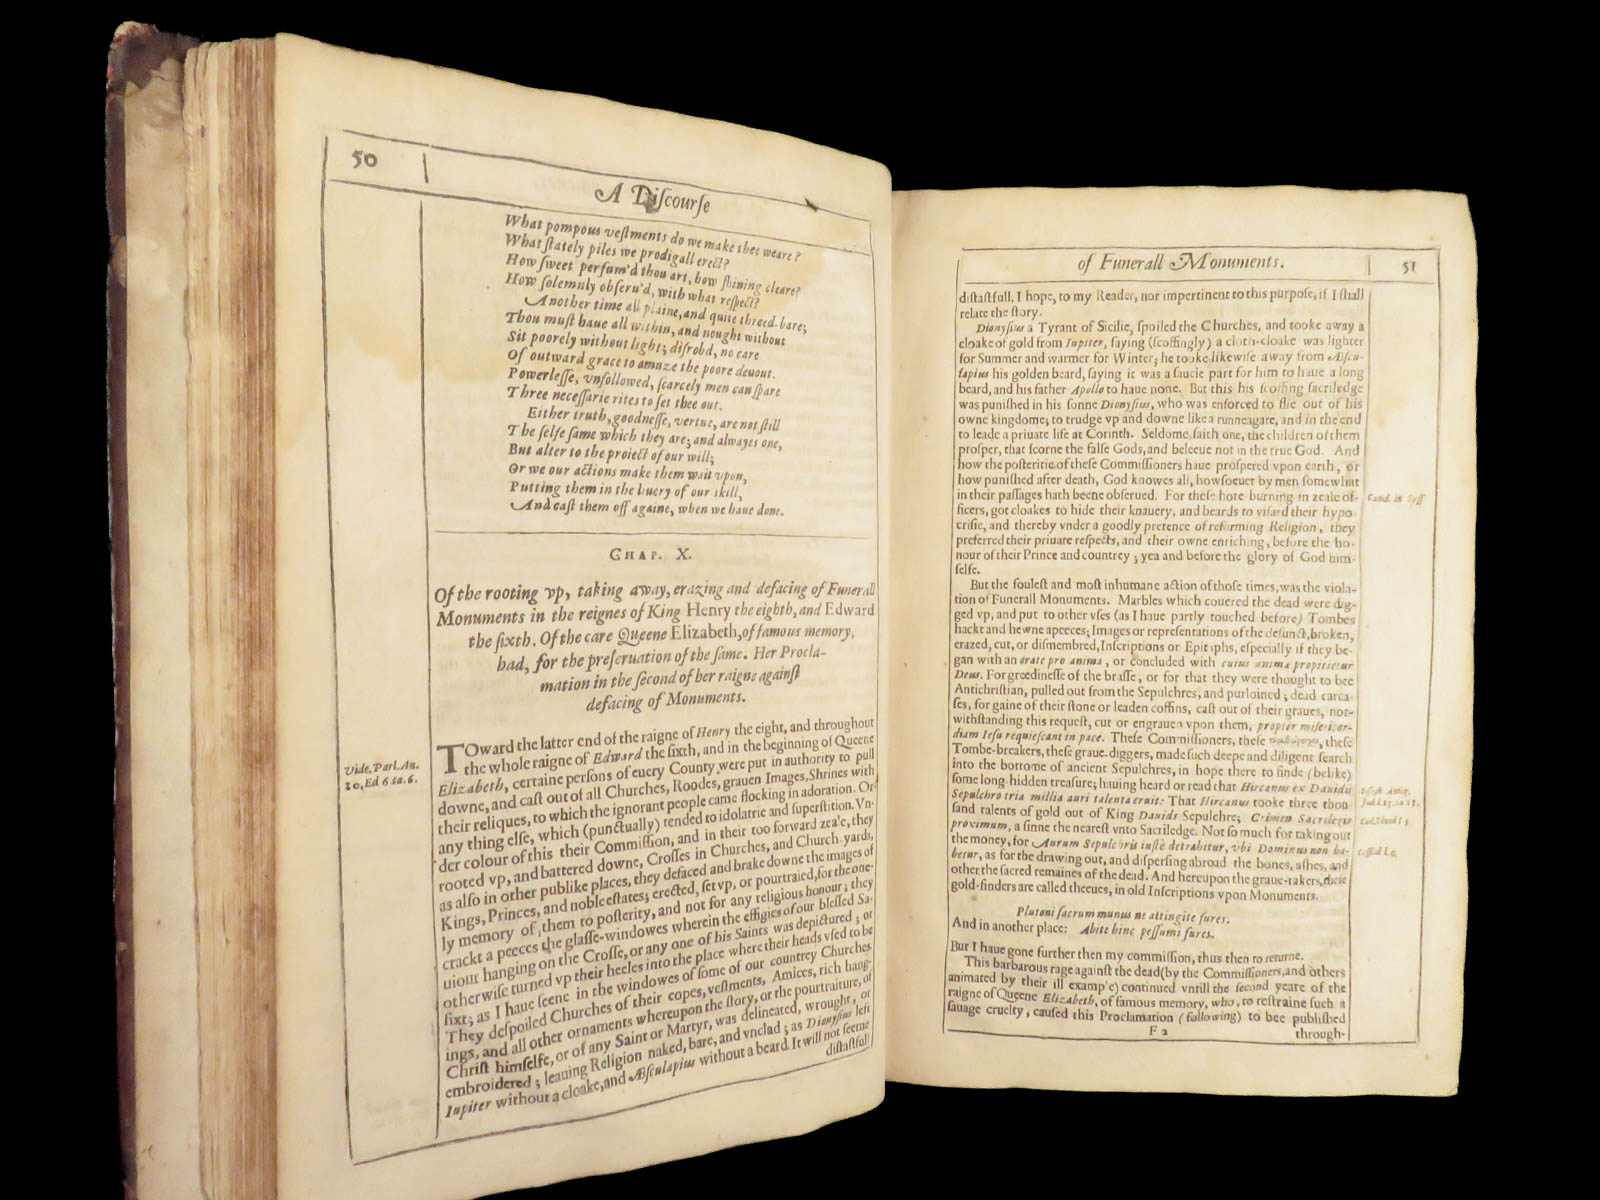 50
A Diſcourſe
What pompous veſtments do we make thee weare?
What ſtately piles we prodigall erect?
How ſweet perfum'd thou art, how ſhining cleare?
How ſolemnly obſeru'd, with what reſpect?
Another time all plaine, and quite threed-bare;
Thou muſt haue all within, and nought without
Sit poorely without light; diſrobd, no care
Of outward grace to amuze the poore deuout.
Powerleſſe, vnfollowed, ſcarcely men can ſpare
Three neceſſarie rites to ſet thee out.
Either truth, goodneſſe, vertue, are not ſtill
The ſelfe ſame which they are; and alwayes one,
But alter to the proiect of our will;
Or we our actions make them wait vpon,
Putting them in the liuery of our skill,
And caſt them off againe, when we haue done.
CHAP. X.
Of the rooting vp, taking away, erazing and defacing of Funerall
Monuments in the reignes of King Henry the eighth, and Edward
the ſixth. Of the care Queene Elizabeth, of famous memory,
had, for the preſeruation of the ſame. Her Procla-
mation in the ſecond of her raigne againſt
defacing of Monuments.
Vide, Parl. An.
TOward the latter end of the raigne of Henry the eight, and throughout
the whole raigne of Edward the ſixth, and in the beginning of Queene
Elizabeth, certaine perſons of euery County were put in authority to pull
downe, and caſt out of all Churches, Roodes, grauen Images, Shrines with
their reliques, to which the ignorant people came flocking in adoration. Or
any thing elſe, which (punctually) tended to idolatrie and ſuperſtition. Vn-
der colour of this their Commiſſion, and in their too forward zeale, they
rooted vp, and battered downe, Croſſes in Churches, and Church-yards,
as alſo in other publike places, they defaced and brake downe the images of
Kings, Princes, and noble eſtates; erected, ſet vp, or pourtraied, for the one-
ly memory of them to poſterity, and not for any religious honour; they
crackt a peeces the glaſſe-windowes wherein the effigies of our bleſſed Sa-
uiour hanging on the Croſſe, or any one of his Saints was depictured; or
otherwiſe turned vp their heeles into the place where their heads vſed to be
fixt; as I haue ſeene in the windowes of ſome of our countrey Churches.
They deſpoiled Churches of their copes, veſtments, Amices, rich hang-
ings, and all other ornaments whereupon the ſtory, or the pourtraiture, of
Chriſt himſelfe, or of any Saint or Martyr, was delineated, wrought, or
embroidered; leauing Religion naked, bare, and vnclad; as Dionyſius left
Iupiter without a cloake, and Æſculapius without a beard. It will not ſeeme
diſtaſtfull
of Funerall Monuments.
51
diſtaſtfull, I hope, to my Reader, nor impertinent to this purpoſe, if I ſhall
relate the ſtory.
Dionyſius a Tyrant of Sicilie, ſpoiled the Churches, and tooke away a
cloake of gold from Iupiter, ſaying (ſcoffingly) a cloth-cloake was lighter
for Summer and warmer for Winter; he tooke likewiſe away from Æſcu-
lapius his golden beard, ſaying it was a ſaucie part for him to haue a long
beard, and his father Apollo to haue none. But this his ſcoffing ſacriledge
was puniſhed in his ſonne Dionyſius, who was enforced to flie out of his
owne kingdome; to trudge vp and downe like a runneagare, and in the end
to leade a priuate life at Corinth. Seldome, ſaith one, the children of them
proſper, that ſcorne the falſe Gods, and beleeue not in the true God. And
how the poſteritie of theſe Commiſſioners haue proſpered vpon earth, or
how puniſhed after death, God knowes all, howſoeuer by men ſomewhat
in their paſſages hath beene obſerued. For theſe hote burning in zeale of-
ficers, got cloakes to hide their knauery, and beards to viſard their hypo
criſie, and thereby vnder a goodly pretence of reforming Religion, they
preferred their priuate reſpects, and their owne enriching, before the ho-
nour of their Prince and countrey; yea and before the glory of God him-
ſelfe.
But the fouleſt and moſt inhumane action of thoſe times, was the viola-
tion of Funerall Monuments. Marbles which couered the dead were dig-
ged vp, and put to other vſes (as I haue partly touched before) Tombes
hackt and hewne apeeces; Images or repreſentations of the defunct, broken,
erazed, cut, or diſmembred, Inſcriptions or Epitaphs, eſpecially if they be-
gan with an orate pro anima, or concluded with cuius anima propitietur
Deus. For greedineſſe of the braſſe, or for that they were thought to bee
Antichriſtian, pulled out from the Sepulchres, and purloined; dead carca-
ſes, for gaine of their ſtone or leaden coffins, caſt out of their graues, not-
withſtanding this requeſt, cut or engrauen vpon them, propter miſericor-
diam Ieſu requieſcant in pace. Theſe Commiſſioners, theſe , theſe
Tombe-breakers, theſe graue-diggers, made ſuch deepe and diligent ſearch
into the bottome of ancient Sepulchres, in hope there to finde (belike)
ſome long-hidden treaſure; hauing heard or read that Hircanus ex Dauidis
Sepulchro tria millia auri talenta eruit: That Hircanus tooke three thou-
ſand talents of gold out of King Dauids Sepulchre; Crimen Sacrilegio
proximum, a ſinne the neareſt vnto Sacriledge. Not ſo much for taking out
the money, for Aurum Sepulchris iuſtè detrahitur, vbi Dominus non ha-
betur, as for the drawing out, and diſperſing abroad the bones, aſhes, and
other the ſacred remaines of the dead. And hereupon the graue-rakers, theſe
gold-finders are called theeues, in old Inſcriptions vpon Monuments.
Plutoni ſacrum munus ne attingite fures.
And in another place: Abite hinc peſſumi fures.
But I haue gone further then my commiſſion, thus then to returne.
This barbarous rage againſt the dead (by the Commiſſioners, and others
animated by their ill example) continued vntill the ſecond yeare of the
raigne of Queene Elizabeth, of famous memory, who, to reſtraine ſuch a
ſauage cruelty, cauſed this Proclamation (following) to bee publiſhed
F 2
through-